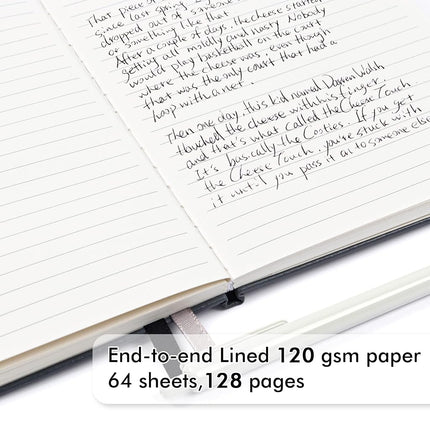 That piece of
since last spring
dropped out of someone's
or something like that.
After a couple of days, the cheese started
getting all moldy and nasty. Nobody
would play basketball on the court
where the cheese was, even though
that was the only court that had a
hoop with a net.
Then one day, this kid named Darren Walsh
touched the cheese with his finger,
and that's what called the Cheese Touch.
It's basically the Cooties. If you get
the Cheese Touch, you're stuck with
it until you pass it on to someone else
End-to-end Lined 120 gsm paper
64 sheets,128 pages